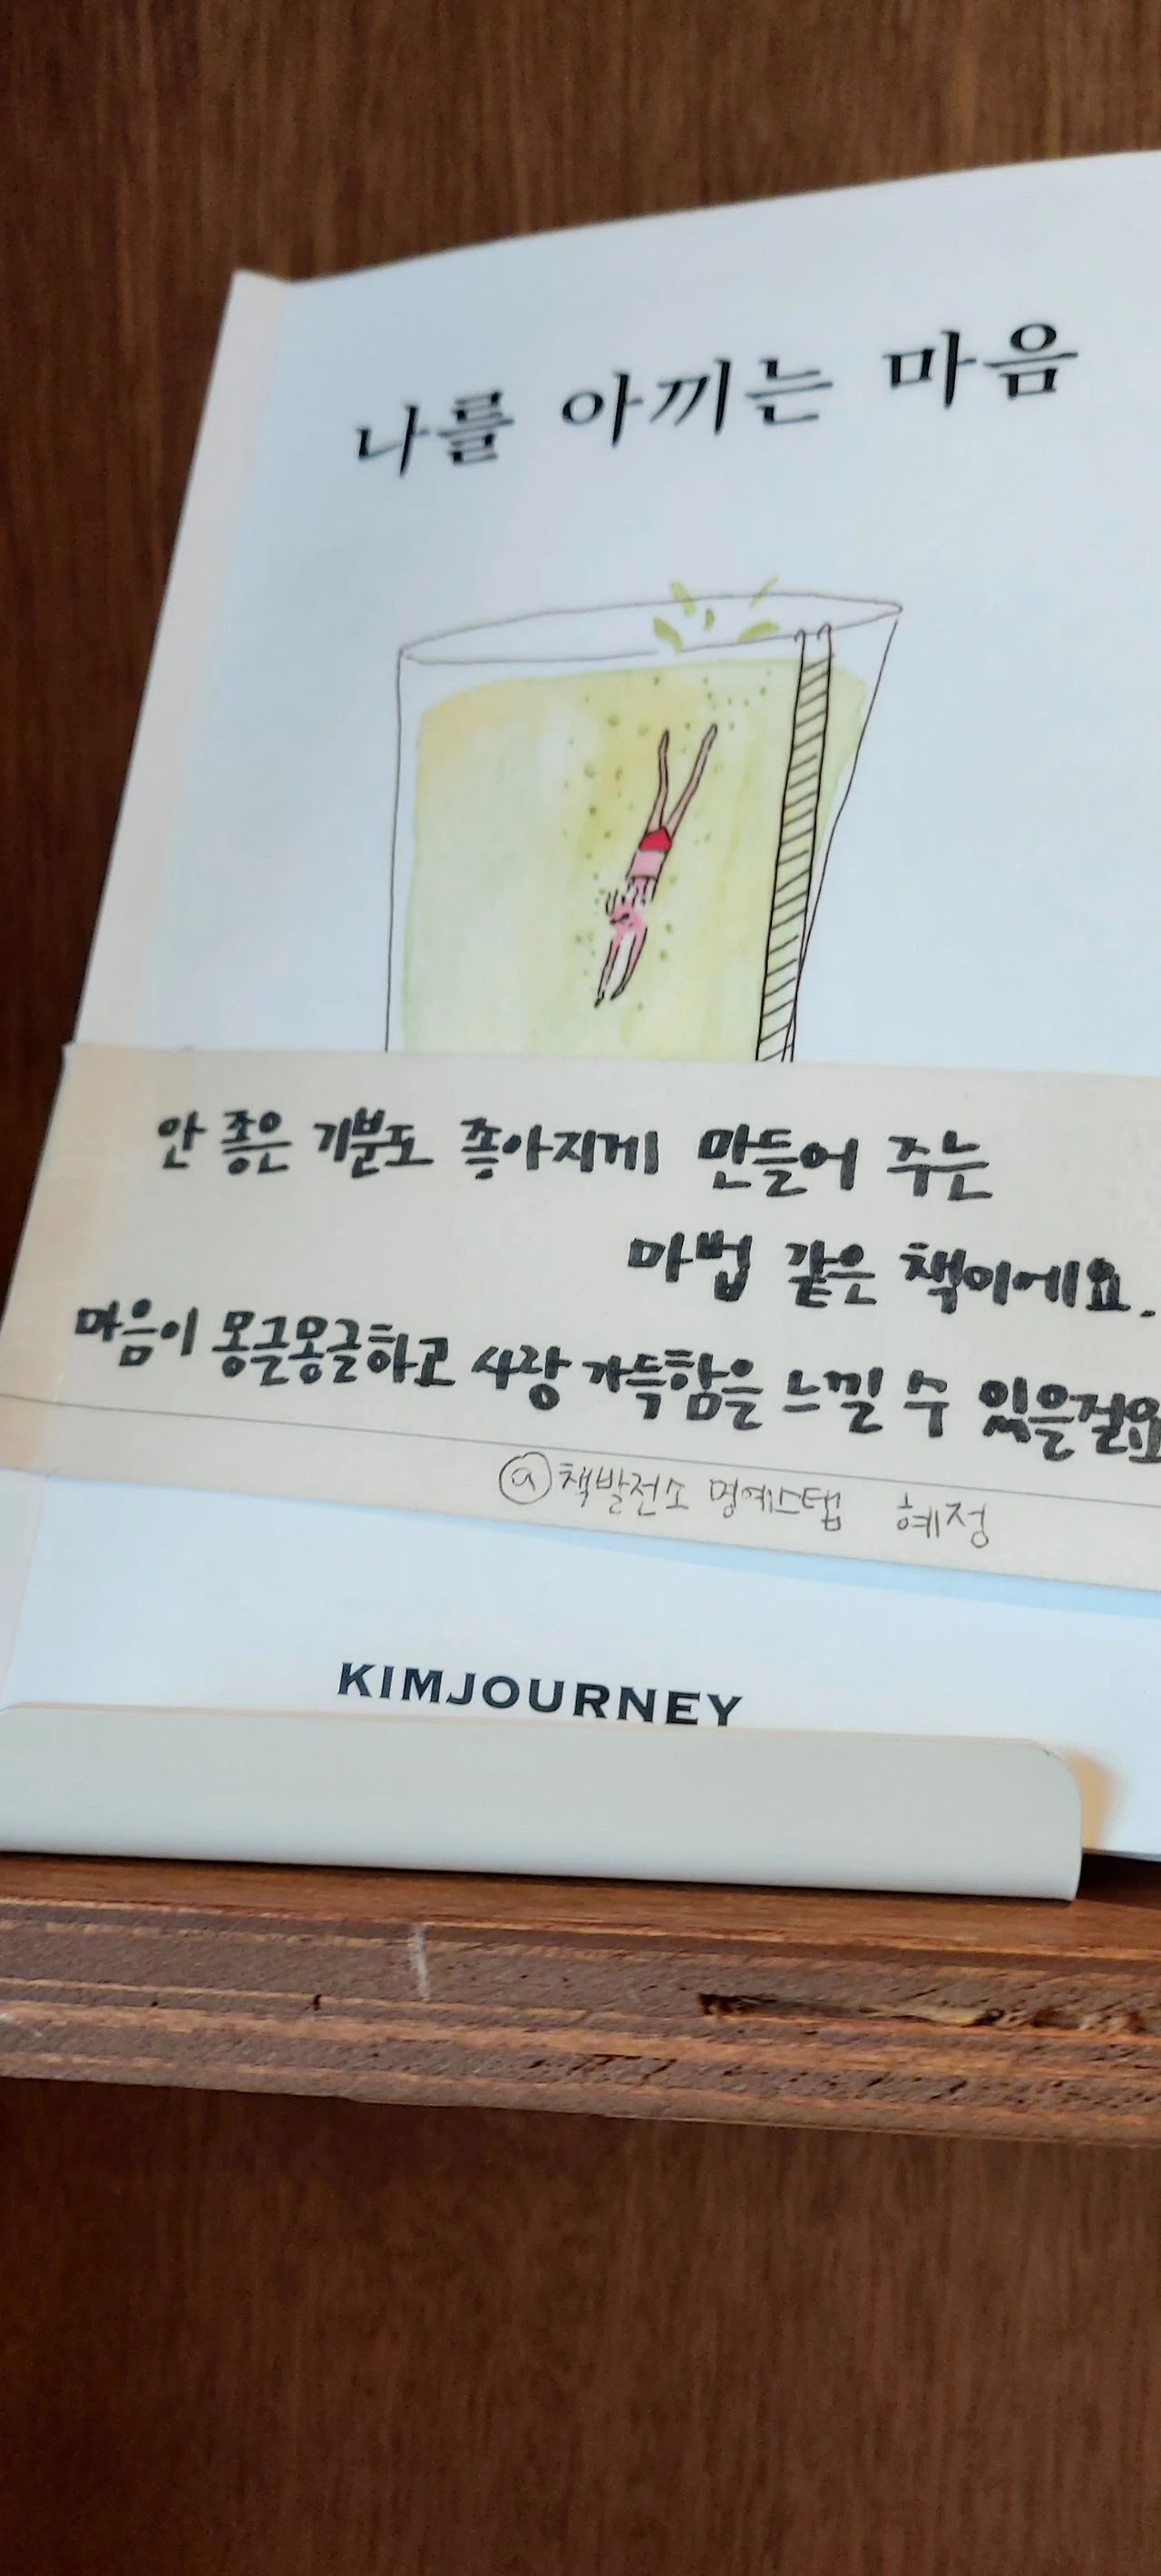 나를 아끼는 마음
안 좋은 기분도 좋아지게 만들어 주는
마법 같은 책이에요.
마음이 몽글몽글하고 사랑 가득함을 느낄 수 있을걸요
@책발전소 명예스탭 혜정
KIMJOURNEY